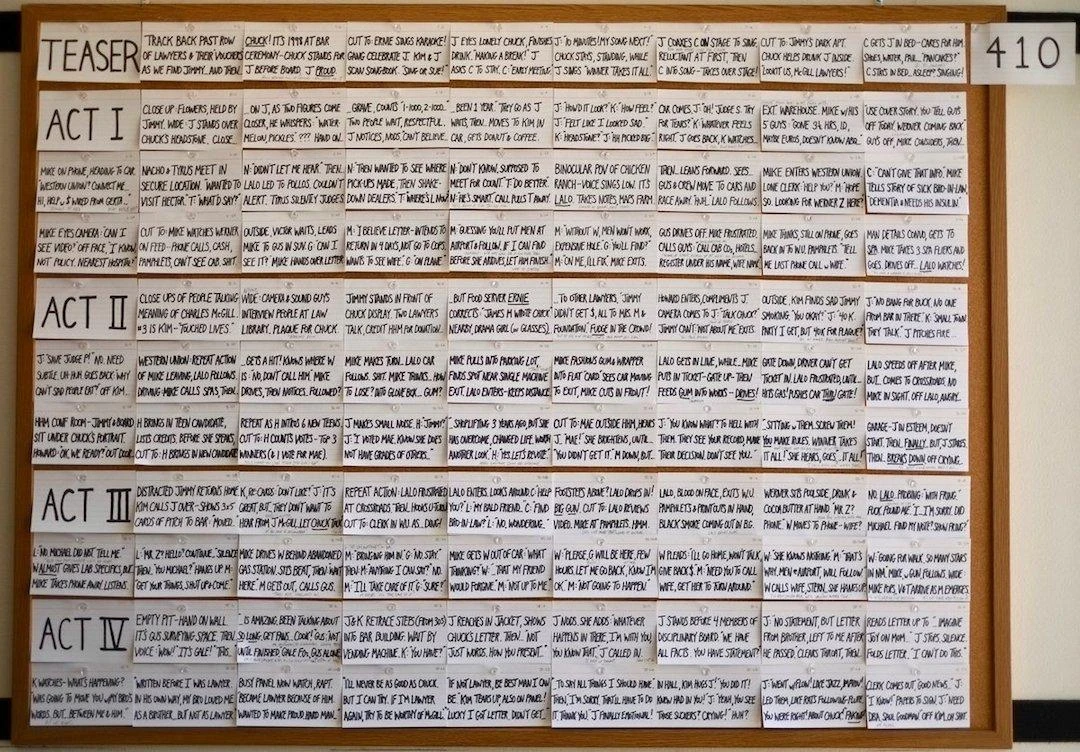 410
TEASER
TRACK BACK PAST ROW
OF LAWYERS & THEIR VOUCHERS
AS WE FIND JIMMY. AND THEN
CHUCK! IT'S 1998 AT BAR
CEREMONY - CHUCK STANDS FOR
J BEFORE BOARD. J PROUD.
CUT TO: ERNIE SINGS KARAOKE!
GANG CELEBRATE J. KIM & J
SCAN SONGBOOK. SING OR SUE!
J EYES LONELY CHUCK, FINISHES
DRINK. MAKING A BREAK! J
ASKS C TO STAY. C: EARLY MEETING
J: 10 MINUTES! MY SONG NEXT!
CHUCK STAYS, STANDING, WHILE
J SINGS "WINNER TAKES IT ALL."
J COAXES C ON STAGE TO SING.
RELUCTANT AT FIRST, THEN
C INTO SONG - TAKES OVER STAGE!
CUT TO: JIMMY'S DARK APT.
CHUCK HELPS DRUNK J INSIDE.
LOOKIT US, McGILL LAWYERS!
C GETS J IN BED - CARES FOR HIM.
SHOES, WATER, PAIL... PANCAKES?
C STAYS IN BED... ASLEEP? SINGING!
ACT I
CLOSE UP - FLOWERS, HELD BY
JIMMY. WIDE - J STANDS OVER
CHUCK'S HEADSTONE. CLOSE...
ON J, AS TWO FIGURES COME
CLOSER, HE WHISPERS: "WATER-
MELON, PICKLES." ??? HAND ON
...GRAVE, COUNTS "1-1000, 2-1000..."
TWO PEOPLE WAIT, RESPECTFUL.
J NOTICES, NODS, CAN'T BELIEVE.
...BEEN 1 YEAR. THEY GO AS J
WAITS, THEN... MOVES TO KIM IN
CAR, GETS DONUT & COFFEE.
J: "HOW'D IT LOOK?" K: "HOW FEEL?"
J: FELT LIKE I LOOKED SAD.
K: "HEADSTONE?" J: HH PICKED BIG.
CAR COMES - J: OH! JUDGE S. TRY
FOR TEARS? K: WHATEVER FEELS
RIGHT. J GOES BACK, K WATCHES...
EXT. WAREHOUSE. MIKE w/ HIS
5 GUYS: GONE 3½ HRS, I.D.,
MAYBE EUROS, DOESN'T KNOW ABQ.
USE COVER STORY, YOU TELL GUYS
OFF TODAY. WERNER COMING BACK.
GUYS OFF, MIKE CONSIDERS, THEN...
MIKE ON PHONE, HEADING TO CAR.
"WESTERN UNION? CONNECT ME...
HI, HELP w/ $ WIRED FROM GERTA..."
NACHO & TYRUS MEET IN
SECURE LOCATION. "WANTED TO
VISIT HECTOR." T: WHAT'D SAY?
N: DIDN'T LET ME HEAR. THEN
LALO LED TO POLLOS. COULDN'T
ALERT. TYRUS SILENTLY JUDGES.
N: THEN WANTED TO SEE WHERE
PICK-UPS MADE, THEN SHAKE-
DOWN DEALERS. T: WHERE'S L NOW
N: DON'T KNOW, SUPPOSED TO
MEET FOR COUNT. T: DO BETTER.
N: HE'S SMART. CALL PULLS T AWAY.
BINOCULAR POV OF CHICKEN
RANCH - VOICE SINGS LOW. IT'S
LALO. TAKES NOTES, MAPS FARM.
THEN... LEANS FORWARD. SEES...
GUS & CREW MOVE TO CARS AND
RACE AWAY. HUH. LALO FOLLOWS.
MIKE ENTERS WESTERN UNION.
LONE CLERK: HELP YOU? M: HOPE
SO. LOOKING FOR WERNER Z HERE?
C: "CAN'T GIVE THAT INFO." MIKE
TELLS STORY OF SICK BRO-IN-LAW,
"DEMENTIA & NEEDS HIS INSULIN."
MIKE EYES CAMERA: CAN I
SEE VIDEO? OFF FACE, "I KNOW
NOT POLICY. NEAREST HOSPITAL?"
CUT TO: MIKE WATCHES WERNER
ON FEED - PHONE CALLS, CASH,
PAMPHLETS, CAN'T SEE CAR. SHIT.
OUTSIDE, VICTOR WAITS, LEADS
MIKE TO GUS IN SUV. G: CAN I
SEE IT? MIKE HANDS OVER LETTER
M: I BELIEVE LETTER - INTENDS TO
RETURN IN 4 DAYS, NOT GO TO COPS.
WANTS TO SEE WIFE. G: "ON PLANE."
M: GUESSING YOU'LL PUT MEN AT
AIRPORT & FOLLOW. IF I CAN FIND
BEFORE SHE ARRIVES, LET HIM FINISH.
M: "WITHOUT W, MEN WON'T WORK,
EXPENSIVE HOLE." G: YOU'LL FIND?
M: ON ME, I'LL FIX. MIKE EXITS.
GUS DRIVES OFF. MIKE FRUSTRATED.
CALLS GUYS: CALL CAB CO.s, HOTELS,
REGISTER UNDER HIS NAME, WIFE NAME
MIKE THINKS, STILL ON PHONE, GOES
BACK IN TO W.U. PAMPHLETS. "TELL
ME LAST PHONE CALL w/ WIFE."
MAN DETAILS CONVO, GETS TO
SPA. MIKE TAKES 3 SPA FLIERS AND
GOES. DRIVES OFF... LALO WATCHES!
ACT II
CLOSE UPS OF PEOPLE TALKING
MEANING OF CHARLES McGILL.
#3 IS KIM - "TOUCHED LIVES."
WIDE: CAMERA & SOUND GUYS
INTERVIEW PEOPLE AT LAW
LIBRARY. PLAQUE FOR CHUCK.
JIMMY STANDS IN FRONT OF
CHUCK DISPLAY. TWO LAWYERS
TALK, CREDIT HIM FOR DONATION.
...BUT FOOD SERVER ERNIE
CORRECTS: "JAMES M WROTE CHECK"
NEARBY, DRAMA GIRL (w/ GLASSES).
...TO OTHER LAWYERS, "JIMMY
DIDN'T GET $, ALL TO MRS. M &
FOUNDATION." FUDGE IN THE CROWD!
HOWARD ENTERS, COMPLIMENTS J.
COMES TO J: "TALK CHUCK?"
JIMMY CAN'T: NOT ABOUT ME. EXITS.
OUTSIDE, KIM FINDS SAD JIMMY
SMOKING. "YOU OKAY?" J: "40 K.
PARTY I GET, BUT 40K FOR PLAQUE?"
J: NO BANG FOR BUCK, NO ONE
FROM BAR IN THERE. K: SMALL TOWN.
THEY TALK. J PITCHES FIRE...
J: "SAVE JUDGE P!" NO. NEED
SUBTLE. UH-HUH. GOES BACK. WHY
CAN'T SAD PEOPLE EAT? OFF KIM...
WESTERN UNION: REPEAT ACTION
OF MIKE LEAVING, LALO FOLLOWS.
DRIVING - MIKE CALLS SPAS, THEN...
...GETS A HIT! KNOWS WHERE W
IS: NO, DON'T CALL HIM. MIKE
DRIVES, THEN NOTICES... FOLLOWED!
MIKE MAKES TURN... LALO CAR
FOLLOWS. SHIT. MIKE THINKS... HOW
TO LOSE? INTO GLOVE BOX... GUM?
MIKE PULLS INTO PARKING LOT,
FINDS SPOT NEAR SINGLE MACHINE
EXIT. LALO ENTERS - KEEPS DISTANCE.
MIKE FASHIONS GUM & WRAPPER
INTO FLAT "CARD". SEES CAR MOVING
TO EXIT, MIKE CUTS IN FRONT!
LALO GETS IN LINE, WHILE... MIKE
PUTS IN TICKET - GATE UP - THEN
FEEDS GUM INTO WORKS - DRIVES!
GATE DOWN, DRIVER CAN'T GET
TICKET IN. LALO FRUSTRATED, UNTIL...
HITS GAS! PUSHES CAR THRU GATE!
LALO SPEEDS OFF AFTER MIKE,
BUT... COMES TO CROSSROADS, NO
MIKE IN SIGHT. OFF LALO, ANGRY...
HHM CONF ROOM - JIMMY & BOARD
SIT UNDER CHUCK'S PORTRAIT.
HOWARD: OK, WE READY? OUT DOOR...
H BRINGS IN TEEN CANDIDATE,
LISTS CREDITS. BEFORE SHE SPEAKS,
CUT TO: H BRINGS IN NEW CANDIDATE
REPEAT AS H INTROS 6 NEW TEENS
CUT TO: H COUNTS VOTES - TOP 3
WINNERS (& 1 VOTE FOR MAE).
J MAKES SMALL NOISE. H: "JIMMY?"
J: I VOTED MAE. KNOW SHE DOES
NOT HAVE GRADES OF OTHERS...
"SHOPLIFTING 3 YEARS AGO, BUT SHE
HAS OVERCOME, CHANGED LIFE. WORTH
ANOTHER LOOK." H: YES. LET'S REVOTE.
CUT TO: MAE OUTSIDE HHM, HEARS
J: MAE! SHE BRIGHTENS, UNTIL...
"YOU DIDN'T GET IT." M DOWN, BUT...
J: "YOU KNOW WHAT? TO HELL WITH
THEM. THEY SEE YOUR RECORD, MAKE
THEIR DECISION. DON'T SEE YOU."
"SITTING w/ THEM, SCREW THEM!
YOU MAKE RULES. WINNER TAKES
IT ALL!" SHE HEARS, GOES... IT ALL!
GARAGE - J IN ESTEEM, DOESN'T
START. THEN, FINALLY... BUT J STARES.
THEN, BREAKS DOWN. OFF CRYING...
ACT III
DISTRACTED JIMMY RETURNS HOME.
KIM CALLS J OVER - SHOWS 3x5
CARDS OF PITCH TO BAR - MOVED.
K, RE: CARDS: DON'T LIKE? J: IT'S
GREAT, BUT... THEY DON'T WANT TO
HEAR FROM J. McGILL. LET CHUCK TALK
REPEAT ACTION: LALO FRUSTRATED
AT CROSSROADS. THEN, HOOKS U-TURN
CUT TO: CLERK IN W.U. AS... DING!
LALO ENTERS. LOOKS AROUND. C: HELP
YOU? L: MY BALD FRIEND. C: FIND
BRO-IN-LAW? L: NO, WONDERING.
FOOTSTEPS ABOVE? LALO DRIVES IN!
BIG GUN. CUT TO: LALO REVIEWS
VIDEO. MIKE AT PAMPHLETS. HMM.
LALO, BLOOD ON FACE, EXITS W.U.
PAMPHLETS & PRINTOUTS IN HAND,
BLACK SMOKE COMING OUT. IN BIG.
WERNER SITS POOLSIDE, DRINK &
COCOA BUTTER AT HAND. "MR. Z?
PHONE." W MOVES TO PHONE - WIFE?
NO, LALO. PROBING: "WITH FRING."
FUCK, FOUND ME. "I... I'M SORRY. DID
MICHAEL FIND MY NOTE? SHOW FRING?"
L: NO, MICHAEL DID NOT TELL ME.
W ALMOST GIVES LAB SPECIFICS, BUT...
MIKE TAKES PHONE AWAY. LISTENS.
L: "MR. Z? HELLO? CONTINUE." SILENCE.
THEN, "YOU MICHAEL?" HANGS UP. M:
"GET YOUR THINGS, SHUT UP & COME."
MIKE DRIVES W BEHIND ABANDONED
GAS STATION. SITS BEAT, THEN "WAIT
HERE." M GETS OUT, CALLS GUS.
M: "BRINGING HIM IN." G: NO. STAY.
THEN M: "ANYTHING I CAN SAY?" NO.
M: "I'LL TAKE CARE OF IT." G: "SURE?"
MIKE GETS W OUT OF CAR: WHAT
THINKING?" W: "THAT MY FRIEND
WOULD FORGIVE." M: "NOT UP TO ME."
W: "PLEASE, G WILL BE HERE, FEW
HOURS. LET ME GO BACK, KNOW I'M
OK." M: "NOT GOING TO HAPPEN."
W PLEADS: "I'LL GO HOME, WON'T TALK,
GIVE BACK $." M: NEED YOU TO CALL
WIFE, GET HER TO TURN AROUND."
W: "SHE KNOWS NOTHING." M: "THAT'S
WHY. MEN @ AIRPORT, WILL FOLLOW."
W CALLS WIFE, STERN, SHE HANGS UP.
W: "GOING FOR WALK, SO MANY STARS
IN NM. MIKE w/ GUN, FOLLOWS. WIDE:
MIKE POPS, VET ARRIVE AS M EMERGES.
ACT IV
EMPTY PIT - HAND ON WALL.
IT'S GUS SURVEYING SPACE. THEN,
VOICE: "WOW!" IT'S GALE! "THIS...
"...IS AMAZING. BEEN TALKING
SO LONG, GET PAWS... COOK." GUS: "NOT
UNTIL FINISHED." GALE FOR, GUS ALONE.
J & K RETRACE STEPS (FROM 305)
INTO BAR BUILDING. WAIT BY
VENDING MACHINE. K: "YOU HAVE?"
J REACHES IN JACKET, SHOWS
CHUCK'S LETTER. THEN... "NOT
JUST WORDS, HOW YOU PRESENT."
J NODS. SHE ADDS: "WHATEVER
HAPPENS IN THERE, I'M WITH YOU.
YOU KNOW THAT." J CALLED IN.
J STANDS BEFORE 4 MEMBERS OF
DISCIPLINARY BOARD: "WE HAVE
ALL FACTS. YOU HAVE STATEMENT?"
J: "NO STATEMENT, BUT LETTER
FROM BROTHER, LEFT TO ME AFTER
HE PASSED. CLEARS THROAT, THEN...
READS LETTER UP TO "...IMAGINE
JOY ON MOM." J STOPS. SILENCE.
FOLDS LETTER. "I CAN'T DO THIS."
K WATCHES - WHAT'S HAPPENING?
"WAS GOING TO MOVE YOU w/ MY BRO'S
WORDS. BUT... BETWEEN ME & HIM."
"WRITTEN BEFORE I WAS LAWYER.
IN HIS OWN WAY, MY BRO LOVED ME
AS A BROTHER, BUT NOT AS LAWYER."
BUSY PANEL NOW WATCH, RAPT.
BECAME LAWYER BECAUSE OF HIM.
WANTED TO MAKE PROUD. HARD MAN.
"I'LL NEVER BE AS GOOD AS CHUCK
BUT I CAN TRY. IF I'M LAWYER
AGAIN, TRY TO BE WORTHY OF McGILL."
"IF NOT LAWYER, BE BEST MAN I CAN
BE." KIM TEARS UP. ALSO ON PANEL!
"LUCKY I GOT LETTER. DIDN'T GET...
"TO SAY ALL THINGS I SHOULD HAVE
THEN, I'M SORRY, THAT'LL HAVE TO DO
IT, THANK YOU." J FINALLY EMOTIONAL!
IN HALL, KIM HUGS J. "YOU DID IT!
KNEW HAD IN YOU." J: "YEAH, YOU SEE
THOSE SUCKERS? CRYING!" HUH?
J: "WENT w/ FLOW! LIKE JAZZ, IMPROV!
LED THEM, LIKE RATS FOLLOWING FLUTE.
YOU WERE RIGHT! ABOUT CHUCK!" FAKING!
CLERK COMES OUT. GOOD NEWS... J:
"I KNOW! PAPERS TO SIGN. J: NEED
DBA. 'SAUL GOODMAN'." OFF KIM, OH SHIT.